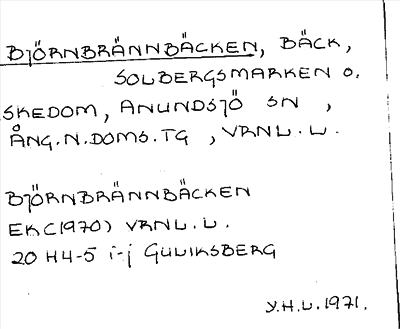 BJÖRNBRÄNNBÄCKEN, BÄCK,
SOLBERGSMARKEN O.
SKEDOM, ANUNDSJÖ SN ,
ÅNG.N.DOMS.TG , VRNL.L.
BJÖRNBRÄNNBÄCKEN
EKC(1970) VRNL.L.
20 H4-5 i-j GULIKSBERG
Y.H.L. 1971.